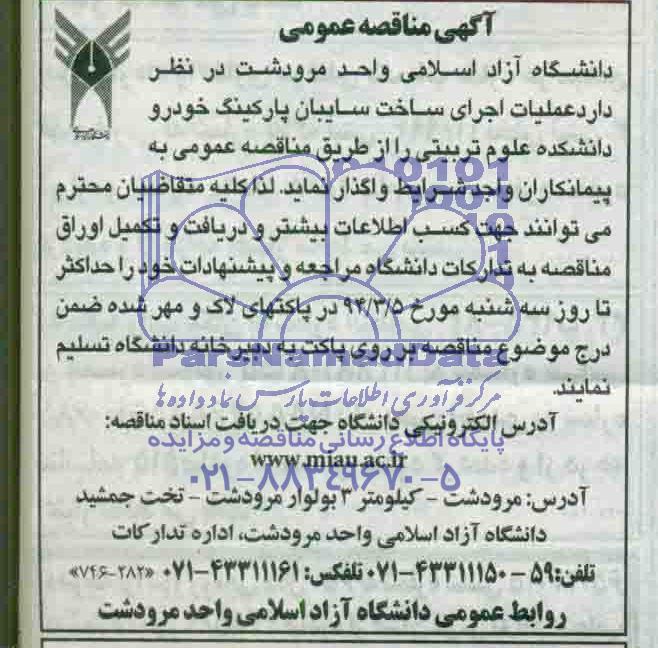 آگهی مناقصه عمومی
دانشگاه آزاد اسلامی واحد مرودشت در نظر
داردعملیات اجرای ساخت سایبان پارکینگ خودرو
دانشکده علوم تربیتی را از طریق مناقصه عمومی به
پیمانکاران واجد شرایط واگذار نماید. لذا کلیه متقاضیان محترم
می توانند جهت کسب اطلاعات بیشتر و دریافت و تکمیل اوراق
مناقصه به تدارکات دانشگاه مراجعه و پیشنهادات خود را حداکثر
تا روز سه شنبه مورخ ۹۴/۳/۵ در پاکتهای لاک و مهر شده ضمن
درج موضوع مناقصه بر روی پاکت به دبیرخانه دانشگاه تسلیم
ParsNamadData
نمایند.
مرکز فرآوری اطلاعات پارس نماد داده ها
آدرس الکترونیکی دانشگاه جهت دریافت اسناد مناقصه:
پایگاه اطلاع رسانی مناقصه و مزایده
www.miau.ac.ir
۰۲۱-۸۸۳۴۹۶۷۰-۵
آدرس: مرودشت - کیلومتر ۳ بولوار مرودشت - تخت جمشید
دانشگاه آزاد اسلامی واحد مرودشت، اداره تدارکات
تلفن: ۵۹ - ۰۷۱-۴۳۳۱۱۱۵۰ تلفکس: ۰۷۱-۴۳۳۱۱۱۶۱ «۷۴۶-۲۸۲»
روابط عمومی دانشگاه آزاد اسلامی واحد مرودشت